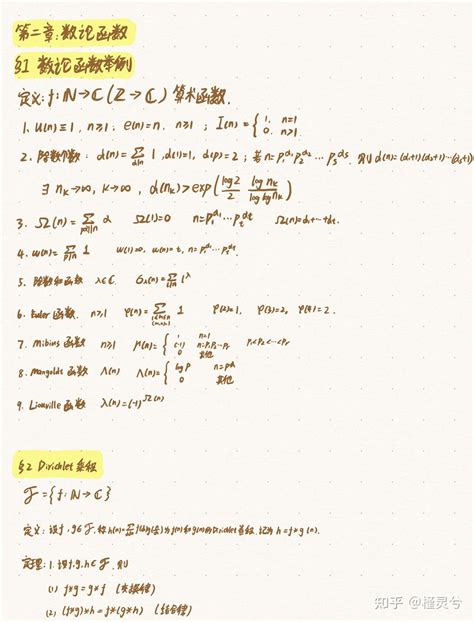 第二章:数论函数
§1 数论函数举例
定义: f: ℕ→ℂ (ℤ→ℂ) 算术函数.
1. u(n)≡1, n≥1; e(n)=n, n≥1; I(n)={1, n=1 0, n>1
2. 除数个数: d(n)=∑_{d|n} 1, d(1)=1, d(p)=2; 若 n=p_1^{α_1}p_2^{α_2}…p_s^{α_s}, 则 d(n)=(α_1+1)(α_2+1)…(α_s+1)
∃ n_k→∞, k→∞, d(n_k)>exp(log2/2 · log n_k/loglog n_k)
3. Ω(n)=∑ α Ω(1)=0 n=p_1^{α_1}…p_t^{α_t} Ω(n)=α_1+…+α_t.
4. ω(n)=∑_{p|n} 1 ω(1)=0, ω(n)=t, n=p_1^{α_1}…p_t^{α_t}
5. 除数和函数 λ∈ℂ. σ_λ(n)=∑_{d|n} d^λ
6. Euler 函数. n≥1 φ(n)=∑ 1 φ(2)=1, φ(3)=2, φ(4)=2.
7. Mibius 函数 n≥1 μ(n)={1 n=1 (-1)^r n=p_1p_2…p_r 0 其他 p_1<p_2<…<p_r
8. Mangoldt 函数 Λ(n) Λ(n)={log p n=p^α 0 其他
9. Liouville 函数 λ(n)=(-1)^{Ω(n)}
§2 Dirichlet 乘积
ℱ={f: ℕ→ℂ}
定义: 设 f, g∈ℱ, 称 h(n)=∑_{d|n} f(d)g(n/d) 为 f(n) 和 g(n) 的 Dirichlet 乘积, 记为 h=f*g (n).
定理: 1. 设 f, g, h∈ℱ, 则
(1) f*g=g*f (交换律)
(2) (f*g)*h=f*(g*h) (结合律)
知乎 @槿灵兮